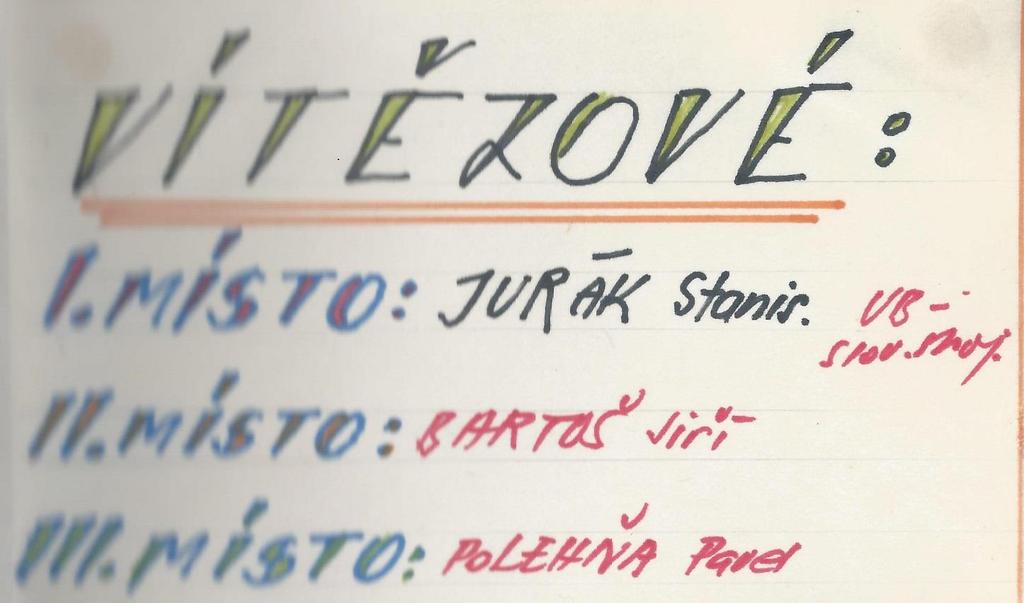 VÍTĚZOVÉ:
I. MÍSTO: JURÁK Stanis.
VB-
II. MÍSTO: BARTOŠ Jiří
III. MÍSTO: POLEHŇA Pavel